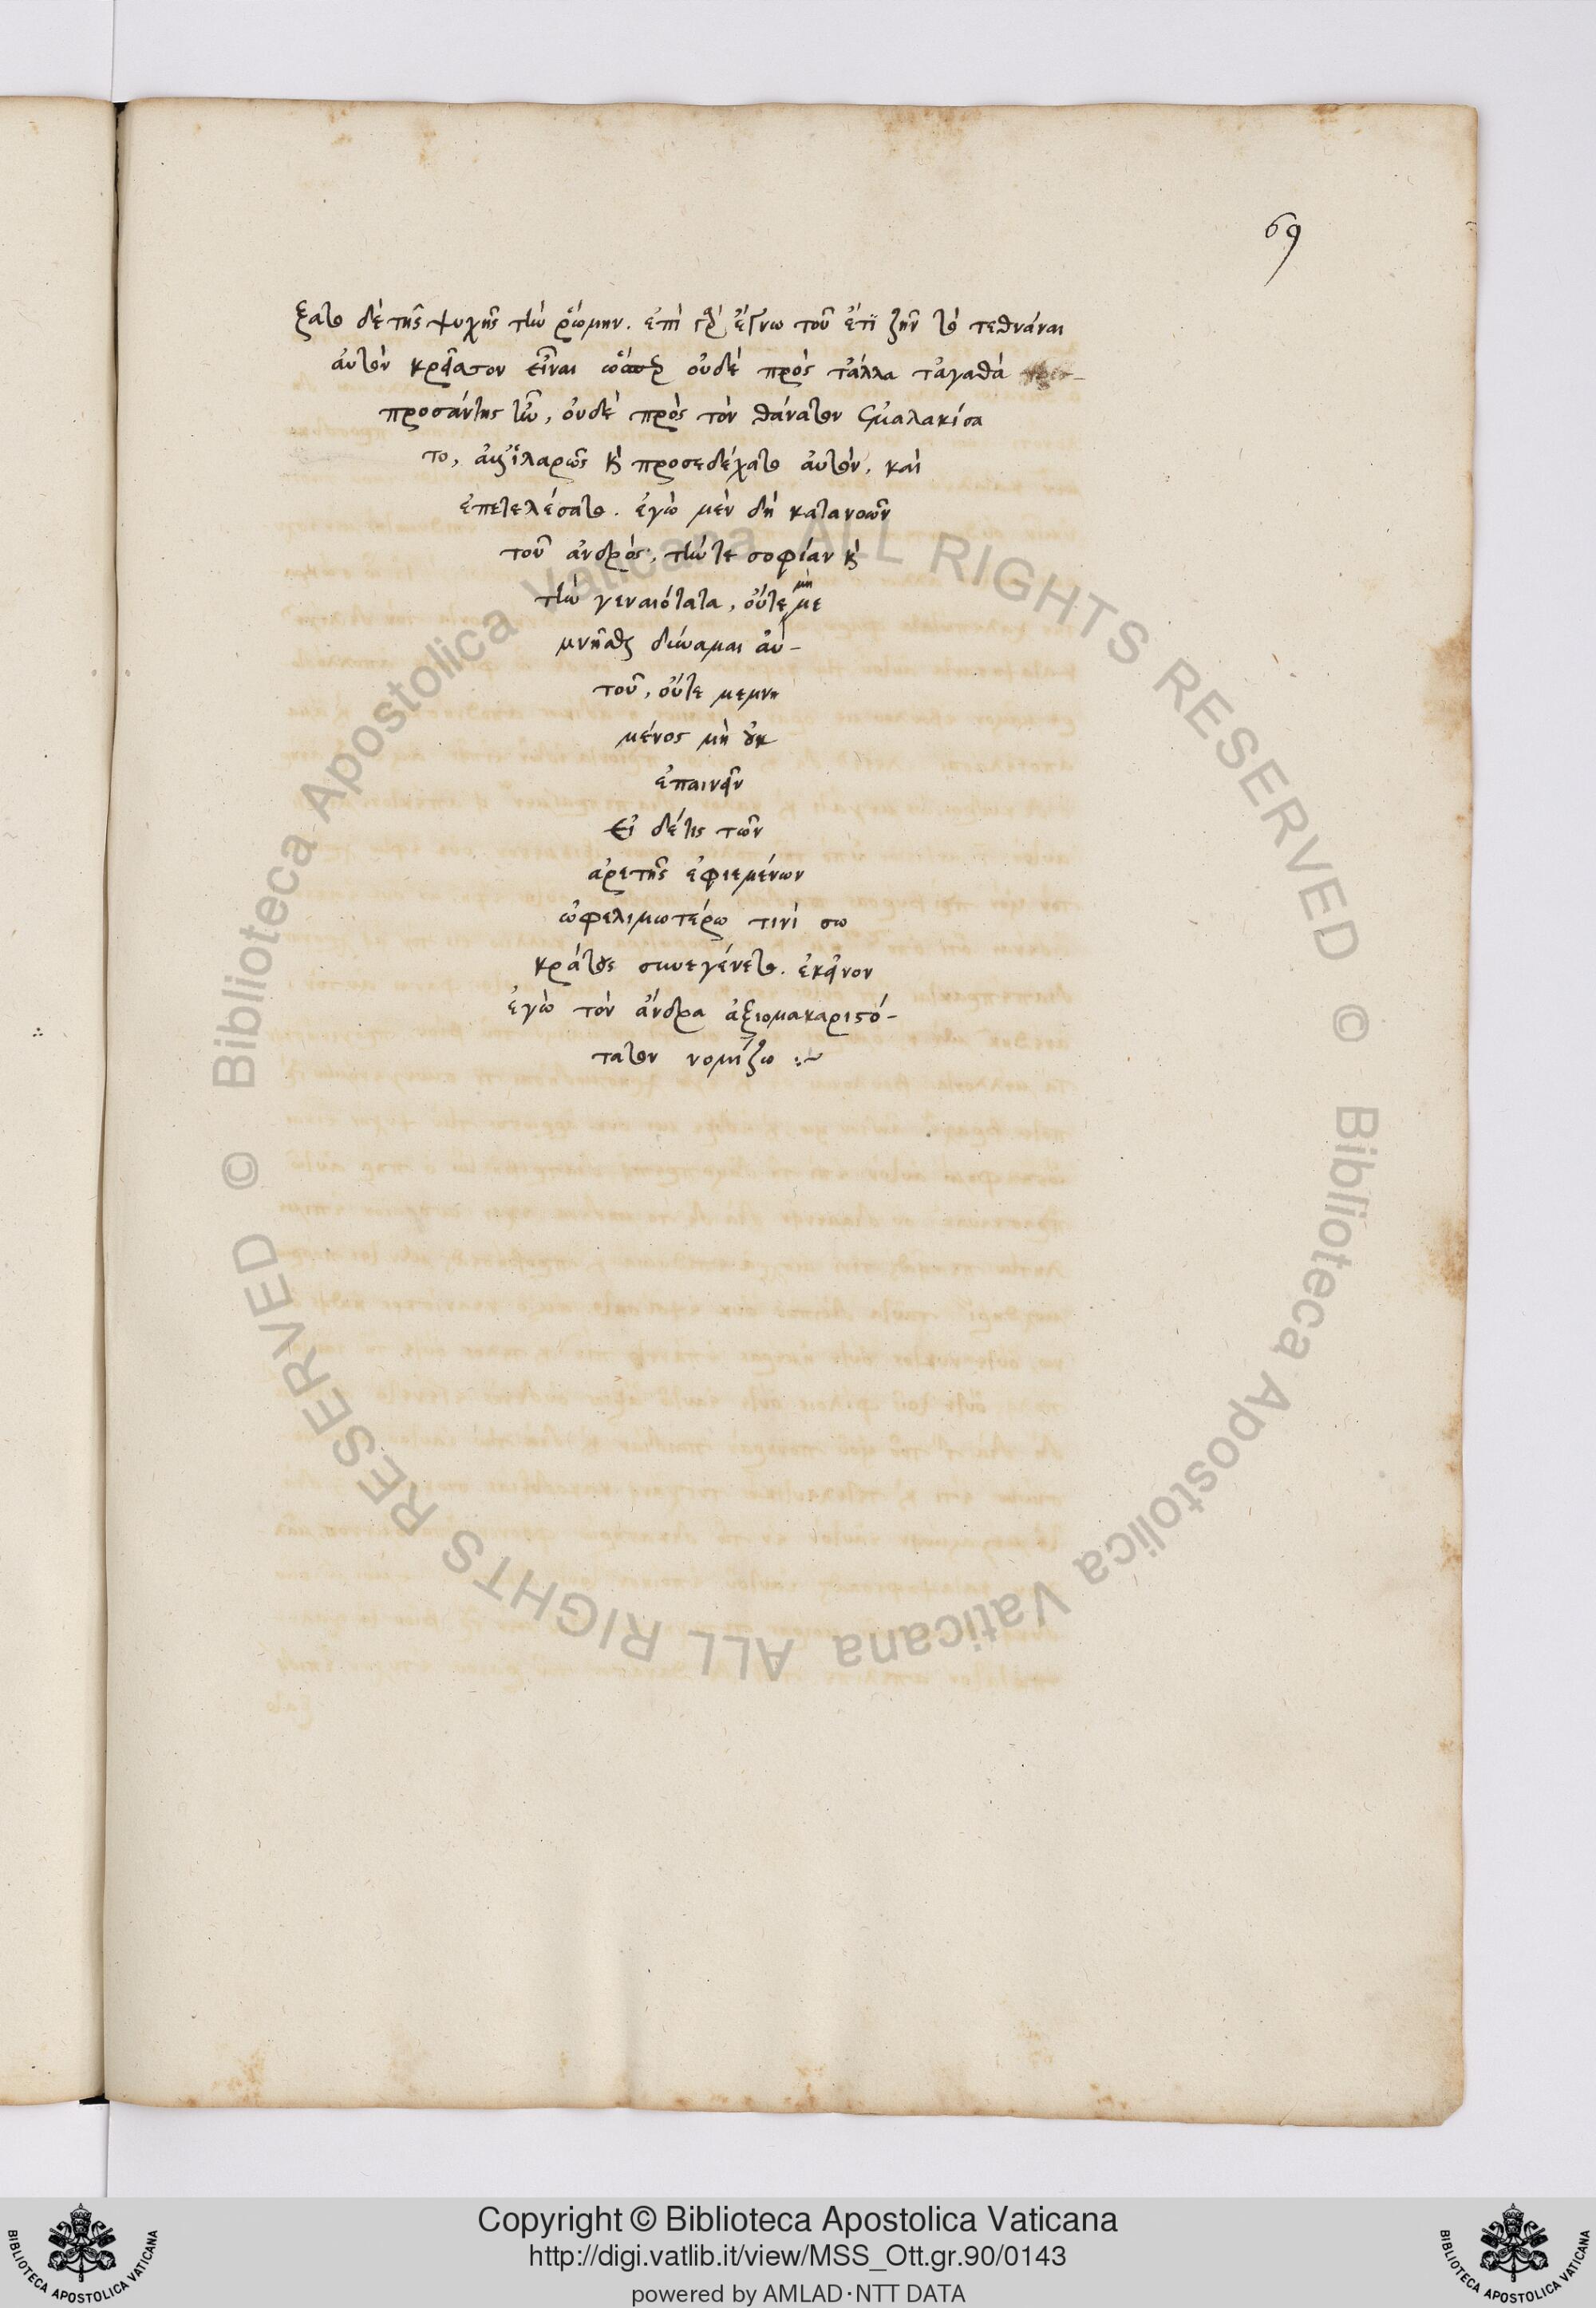 69
ξατο δὲ τῆς ψυχῆς τὴν ῥώμην. ἐπὶ γὰρ ἔγνω τοῦ ἔτι ζῆν τὸ τεθνάναι
αὐτὸν κρεῖσσον εἶναι ὥσπερ οὐδὲ πρὸς τἄλλα τἀγαθὰ
προσάντης ἦν, οὐδὲ πρὸς τὸν θάνατον ἐμαλακίσα
το, ἀλλ' ἱλαρῶς καὶ προσεδέχατο αὐτὸν, καὶ
ἐπετελέσατο. ἐγὼ μὲν δὴ κατανοῶν
τοῦ ἀνδρὸς, τήν τε σοφίαν καὶ
τὴν γεναιότατα, οὔτε μὴ με
μνῆσθαι δύναμαι αὐ-
τοῦ, οὔτε μεμνη
μένος μὴ οὐκ
ἐπαινεῖν
Εἰ δέ τις τῶν
ἀρετῆς ἐφιεμένων
ὠφελιμωτέρω τινὶ σω
κράτους συνεγένετο. ἐκεῖνον
ἐγὼ τὸν ἄνδρα ἀξιομακαριστό-
τατον νομίζω :~
© Biblioteca Apostolica Vaticana ALL RIGHTS RESERVED
© Biblioteca Apostolica Vaticana ALL RIGHTS RESERVED
BIBLIOTECA APOSTOLICA VATICANA
Copyright © Biblioteca Apostolica Vaticana
http://digi.vatlib.it/view/MSS_Ott.gr.90/0143
powered by AMLAD·NTT DATA
BIBLIOTECA APOSTOLICA VATICANA